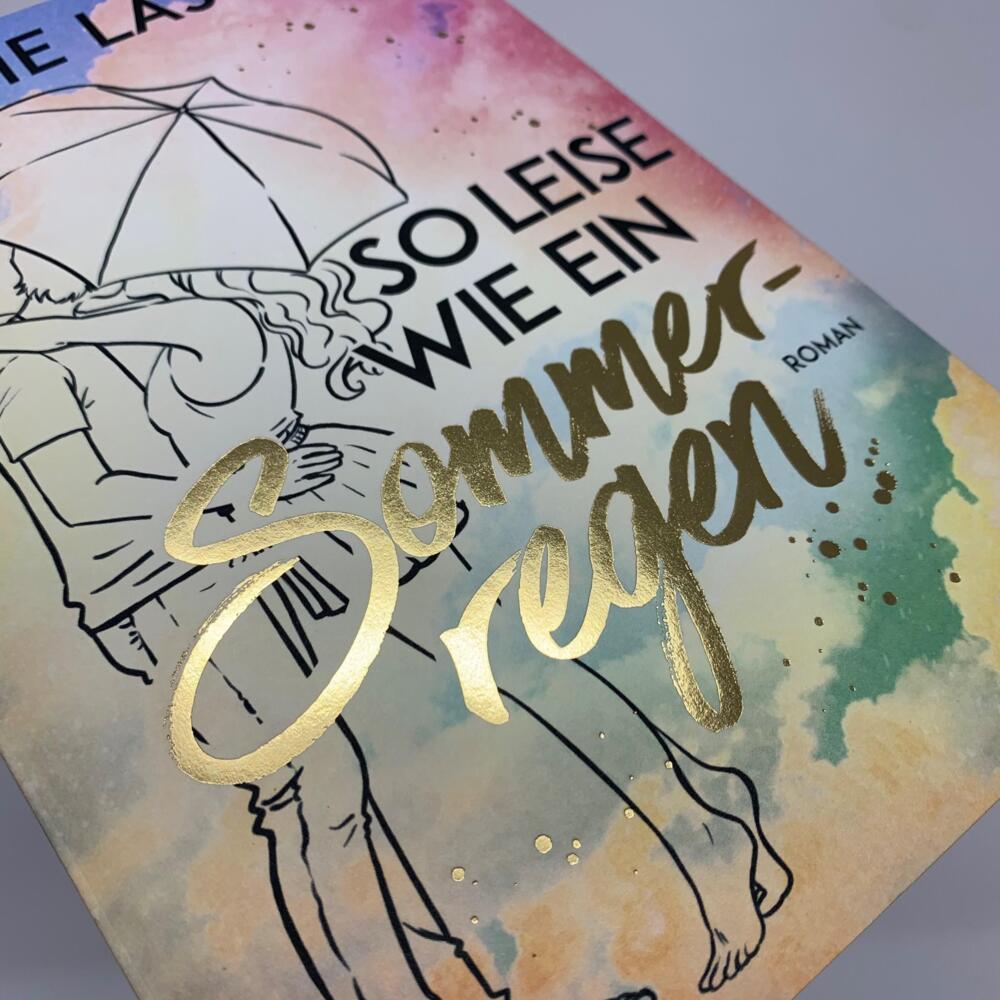 IE LAS
SO LEISE
WIE EIN
Sommer-
regen
ROMAN